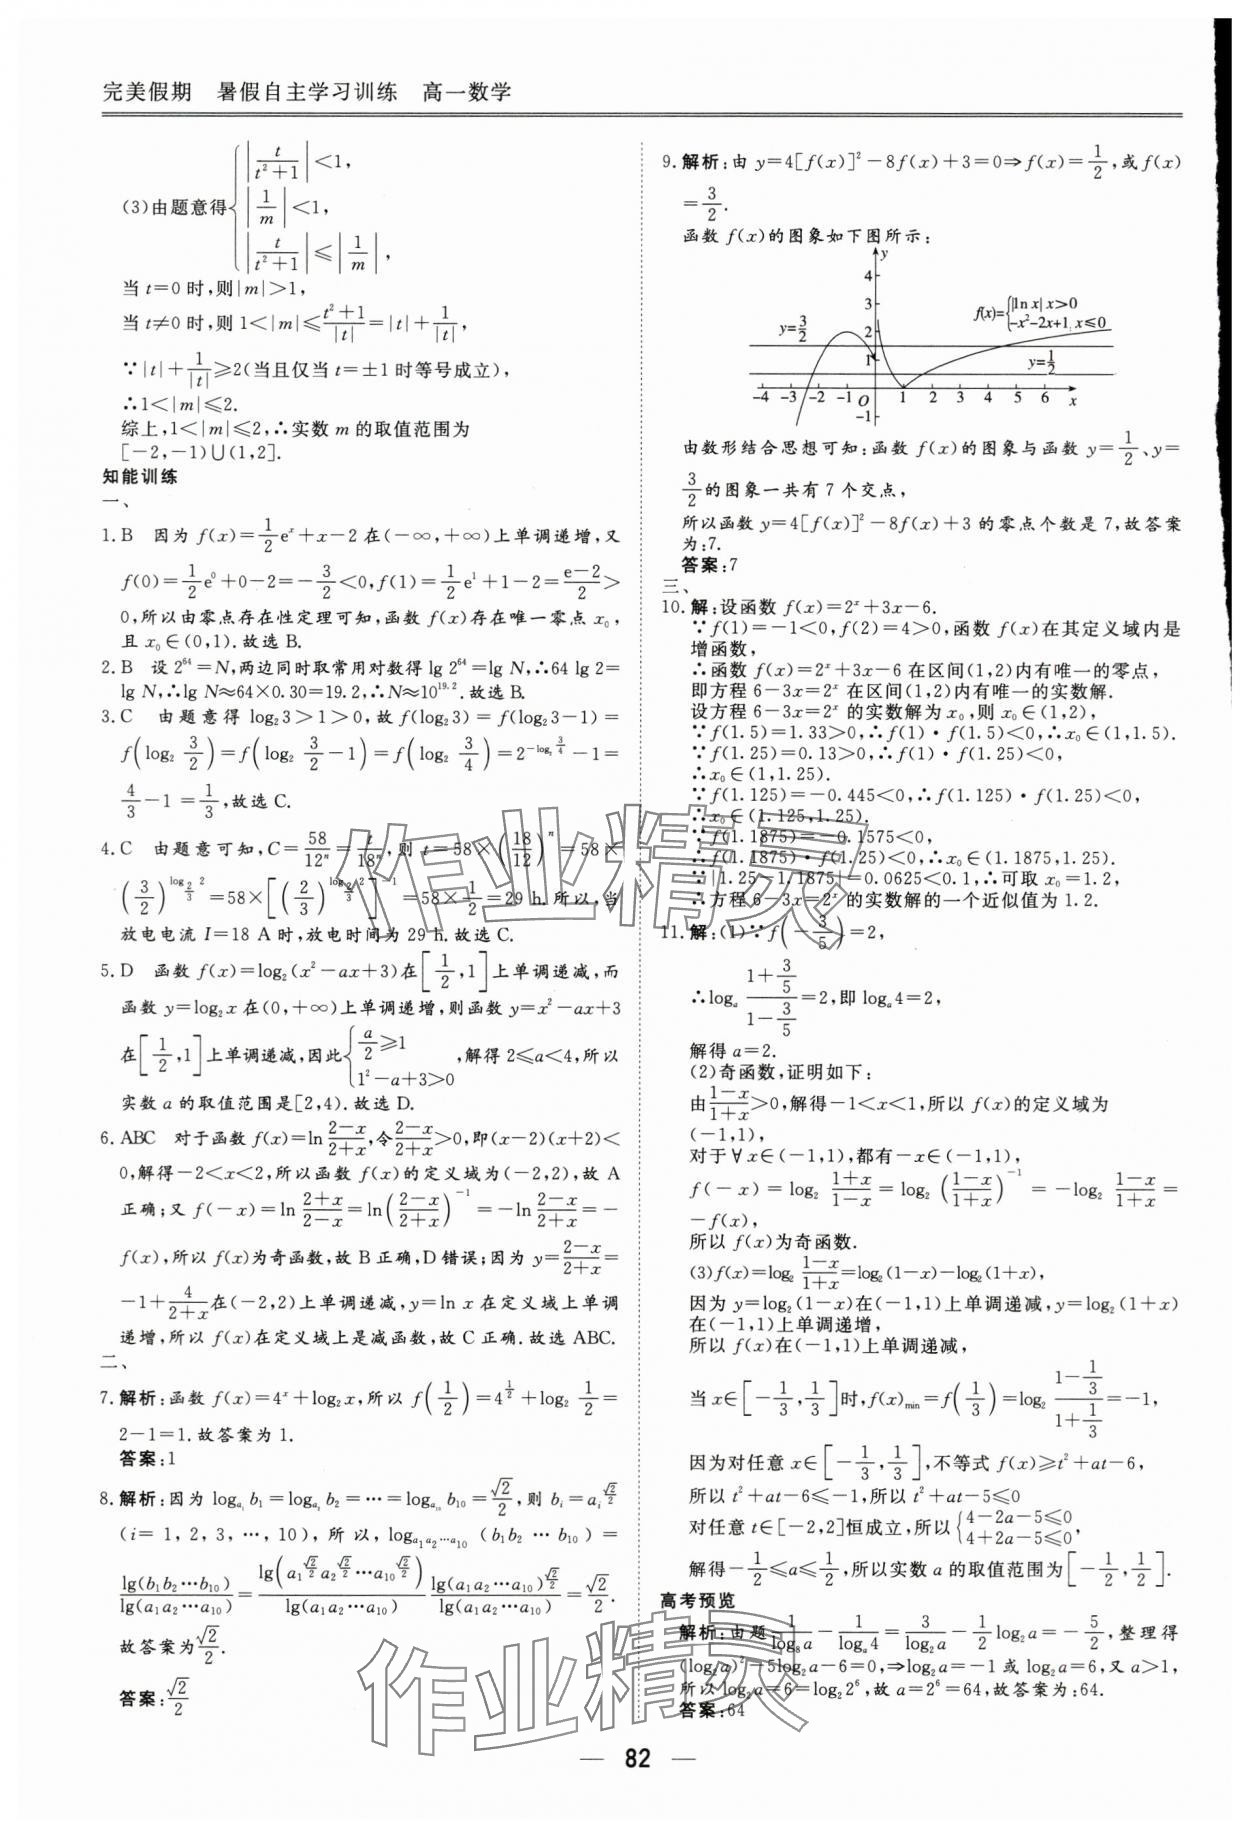 完美假期　暑假自主学习训练　高一数学
(3)由题意得{|t/(t²+1)|<1,
|1/m|<1,
|t/(t²+1)|≤|1/m|,
当 t=0 时,则|m|>1,
当 t≠0 时,则 1<|m|≤(t²+1)/|t|=|t|+1/|t|,
∵|t|+1/|t|≥2(当且仅当 t=±1 时等号成立),
∴1<|m|≤2.
综上,1<|m|≤2,∴实数 m 的取值范围为
[-2,-1)∪(1,2].
知能训练
一、
1. B　因为 f(x)=1/2 eˣ+x-2 在(-∞,+∞)上单调递增,又
f(0)=1/2 e⁰+0-2=-3/2<0,f(1)=1/2 e¹+1-2=(e-2)/2>
0,所以由零点存在性定理可知,函数 f(x)存在唯一零点 x₀,
且 x₀∈(0,1).故选 B.
2. B　设 2⁶⁴=N,两边同时取常用对数得 lg 2⁶⁴=lg N,∴64 lg 2=
lg N,∴lg N≈64×0.30=19.2,∴N≈10^19.2.故选 B.
3. C　由题意得 log₂3>1>0,故 f(log₂3)=f(log₂3-1)=
f(log₂ 3/2)=f(log₂ 3/2-1)=f(log₂ 3/4)=2^(-log₂ 3/4)-1=
4/3-1=1/3,故选 C.
4. C　由题意可知,C=58/12ⁿ=t/18ⁿ,则 t=58×(18/12)ⁿ=58×
(3/2)^(log_(2/3) 2)=58×[(2/3)^(log_(2/3) 2)]⁻¹=58×1/2=29 h.所以,当
放电电流 I=18 A 时,放电时间为 29 h.故选 C.
5. D　函数 f(x)=log₂(x²-ax+3)在[1/2,1]上单调递减,而
函数 y=log₂x 在(0,+∞)上单调递增,则函数 y=x²-ax+3
在[1/2,1]上单调递减,因此{a/2≥1
1²-a+3>0,解得 2≤a<4,所以
实数 a 的取值范围是[2,4).故选 D.
6. ABC　对于函数 f(x)=ln (2-x)/(2+x),令(2-x)/(2+x)>0,即(x-2)(x+2)<
0,解得-2<x<2,所以函数 f(x)的定义域为(-2,2),故 A
正确;又 f(-x)=ln (2+x)/(2-x)=ln((2-x)/(2+x))⁻¹=-ln (2-x)/(2+x)=-
f(x),所以 f(x)为奇函数,故 B 正确,D 错误;因为 y=(2-x)/(2+x)=
-1+4/(2+x)在(-2,2)上单调递减,y=ln x 在定义域上单调
递增,所以 f(x)在定义域上是减函数,故 C 正确.故选 ABC.
二、
7. 解析:函数 f(x)=4ˣ+log₂x,所以 f(1/2)=4^(1/2)+log₂ 1/2=
2-1=1.故答案为 1.
答案:1
8. 解析:因为 log_(a₁) b₁=log_(a₂) b₂=…=log_(a₁₀) b₁₀=√2/2,则 bᵢ=aᵢ^(√2/2)
(i=1,2,3,…,10),所以,log_(a₁a₂…a₁₀)(b₁b₂…b₁₀)=
lg(b₁b₂…b₁₀)/lg(a₁a₂…a₁₀)=lg(a₁^(√2/2)a₂^(√2/2)…a₁₀^(√2/2))/lg(a₁a₂…a₁₀) lg(a₁a₂…a₁₀)^(√2/2)/lg(a₁a₂…a₁₀)=√2/2.
故答案为√2/2.
答案:√2/2
9. 解析:由 y=4[f(x)]²-8f(x)+3=0⇒f(x)=1/2,或f(x)
=3/2.
函数 f(x)的图象如下图所示:
y
4
3
2
1
-1
y=3/2
f(x)={|ln x| x>0
-x²-2x+1, x≤0
y=1/2
-4 -3 -2 -1 O 1 2 3 4 5 6 x
由数形结合思想可知:函数 f(x)的图象与函数 y=1/2、y=
3/2的图象一共有 7 个交点,
所以函数 y=4[f(x)]²-8f(x)+3 的零点个数是 7,故答案
为:7.
答案:7
三、
10. 解:设函数 f(x)=2ˣ+3x-6.
∵f(1)=-1<0,f(2)=4>0,函数 f(x)在其定义域内是
增函数,
∴函数 f(x)=2ˣ+3x-6 在区间(1,2)内有唯一的零点,
即方程 6-3x=2ˣ 在区间(1,2)内有唯一的实数解.
设方程 6-3x=2ˣ 的实数解为 x₀,则 x₀∈(1,2),
∵f(1.5)=1.33>0,∴f(1)·f(1.5)<0,∴x₀∈(1,1.5).
∵f(1.25)=0.13>0,∴f(1)·f(1.25)<0,
∴x₀∈(1,1.25).
∵f(1.125)=-0.445<0,∴f(1.125)·f(1.25)<0,
∴x₀∈(1.125,1.25).
∵f(1.1875)=-0.1575<0,
∴f(1.1875)·f(1.25)<0,∴x₀∈(1.1875,1.25).
∵|1.25-1.1875|=0.0625<0.1,∴可取 x₀=1.2,
∴方程 6-3x=2ˣ 的实数解的一个近似值为 1.2.
11. 解:(1)∵f(-3/5)=2,
∴logₐ (1+3/5)/(1-3/5)=2,即 logₐ4=2,
解得 a=2.
(2)奇函数,证明如下:
由(1-x)/(1+x)>0,解得-1<x<1,所以 f(x)的定义域为
(-1,1),
对于∀x∈(-1,1),都有-x∈(-1,1),
f(-x)=log₂ (1+x)/(1-x)=log₂((1-x)/(1+x))⁻¹=-log₂ (1-x)/(1+x)=
-f(x),
所以 f(x)为奇函数.
(3)f(x)=log₂ (1-x)/(1+x)=log₂(1-x)-log₂(1+x),
因为 y=log₂(1-x)在(-1,1)上单调递减,y=log₂(1+x)
在(-1,1)上单调递增,
所以 f(x)在(-1,1)上单调递减,
当 x∈[-1/3,1/3]时,f(x)min=f(1/3)=log₂ (1-1/3)/(1+1/3)=-1,
因为对任意 x∈[-1/3,1/3],不等式 f(x)≥t²+at-6,
所以 t²+at-6≤-1,所以 t²+at-5≤0
对任意 t∈[-2,2]恒成立,所以{4-2a-5≤0
4+2a-5≤0,
解得-1/2≤a≤1/2,所以实数 a 的取值范围为[-1/2,1/2].
高考预览
解析:由题 1/log₈a-1/logₐ4=3/log₂a-1/2 log₂a=-5/2,整理得
(log₂a)²-5log₂a-6=0,⇒log₂a=-1 或 log₂a=6,又 a>1,
所以 log₂a=6=log₂2⁶,故 a=2⁶=64,故答案为:64.
答案:64
作业精灵
作业精灵
— 82 —